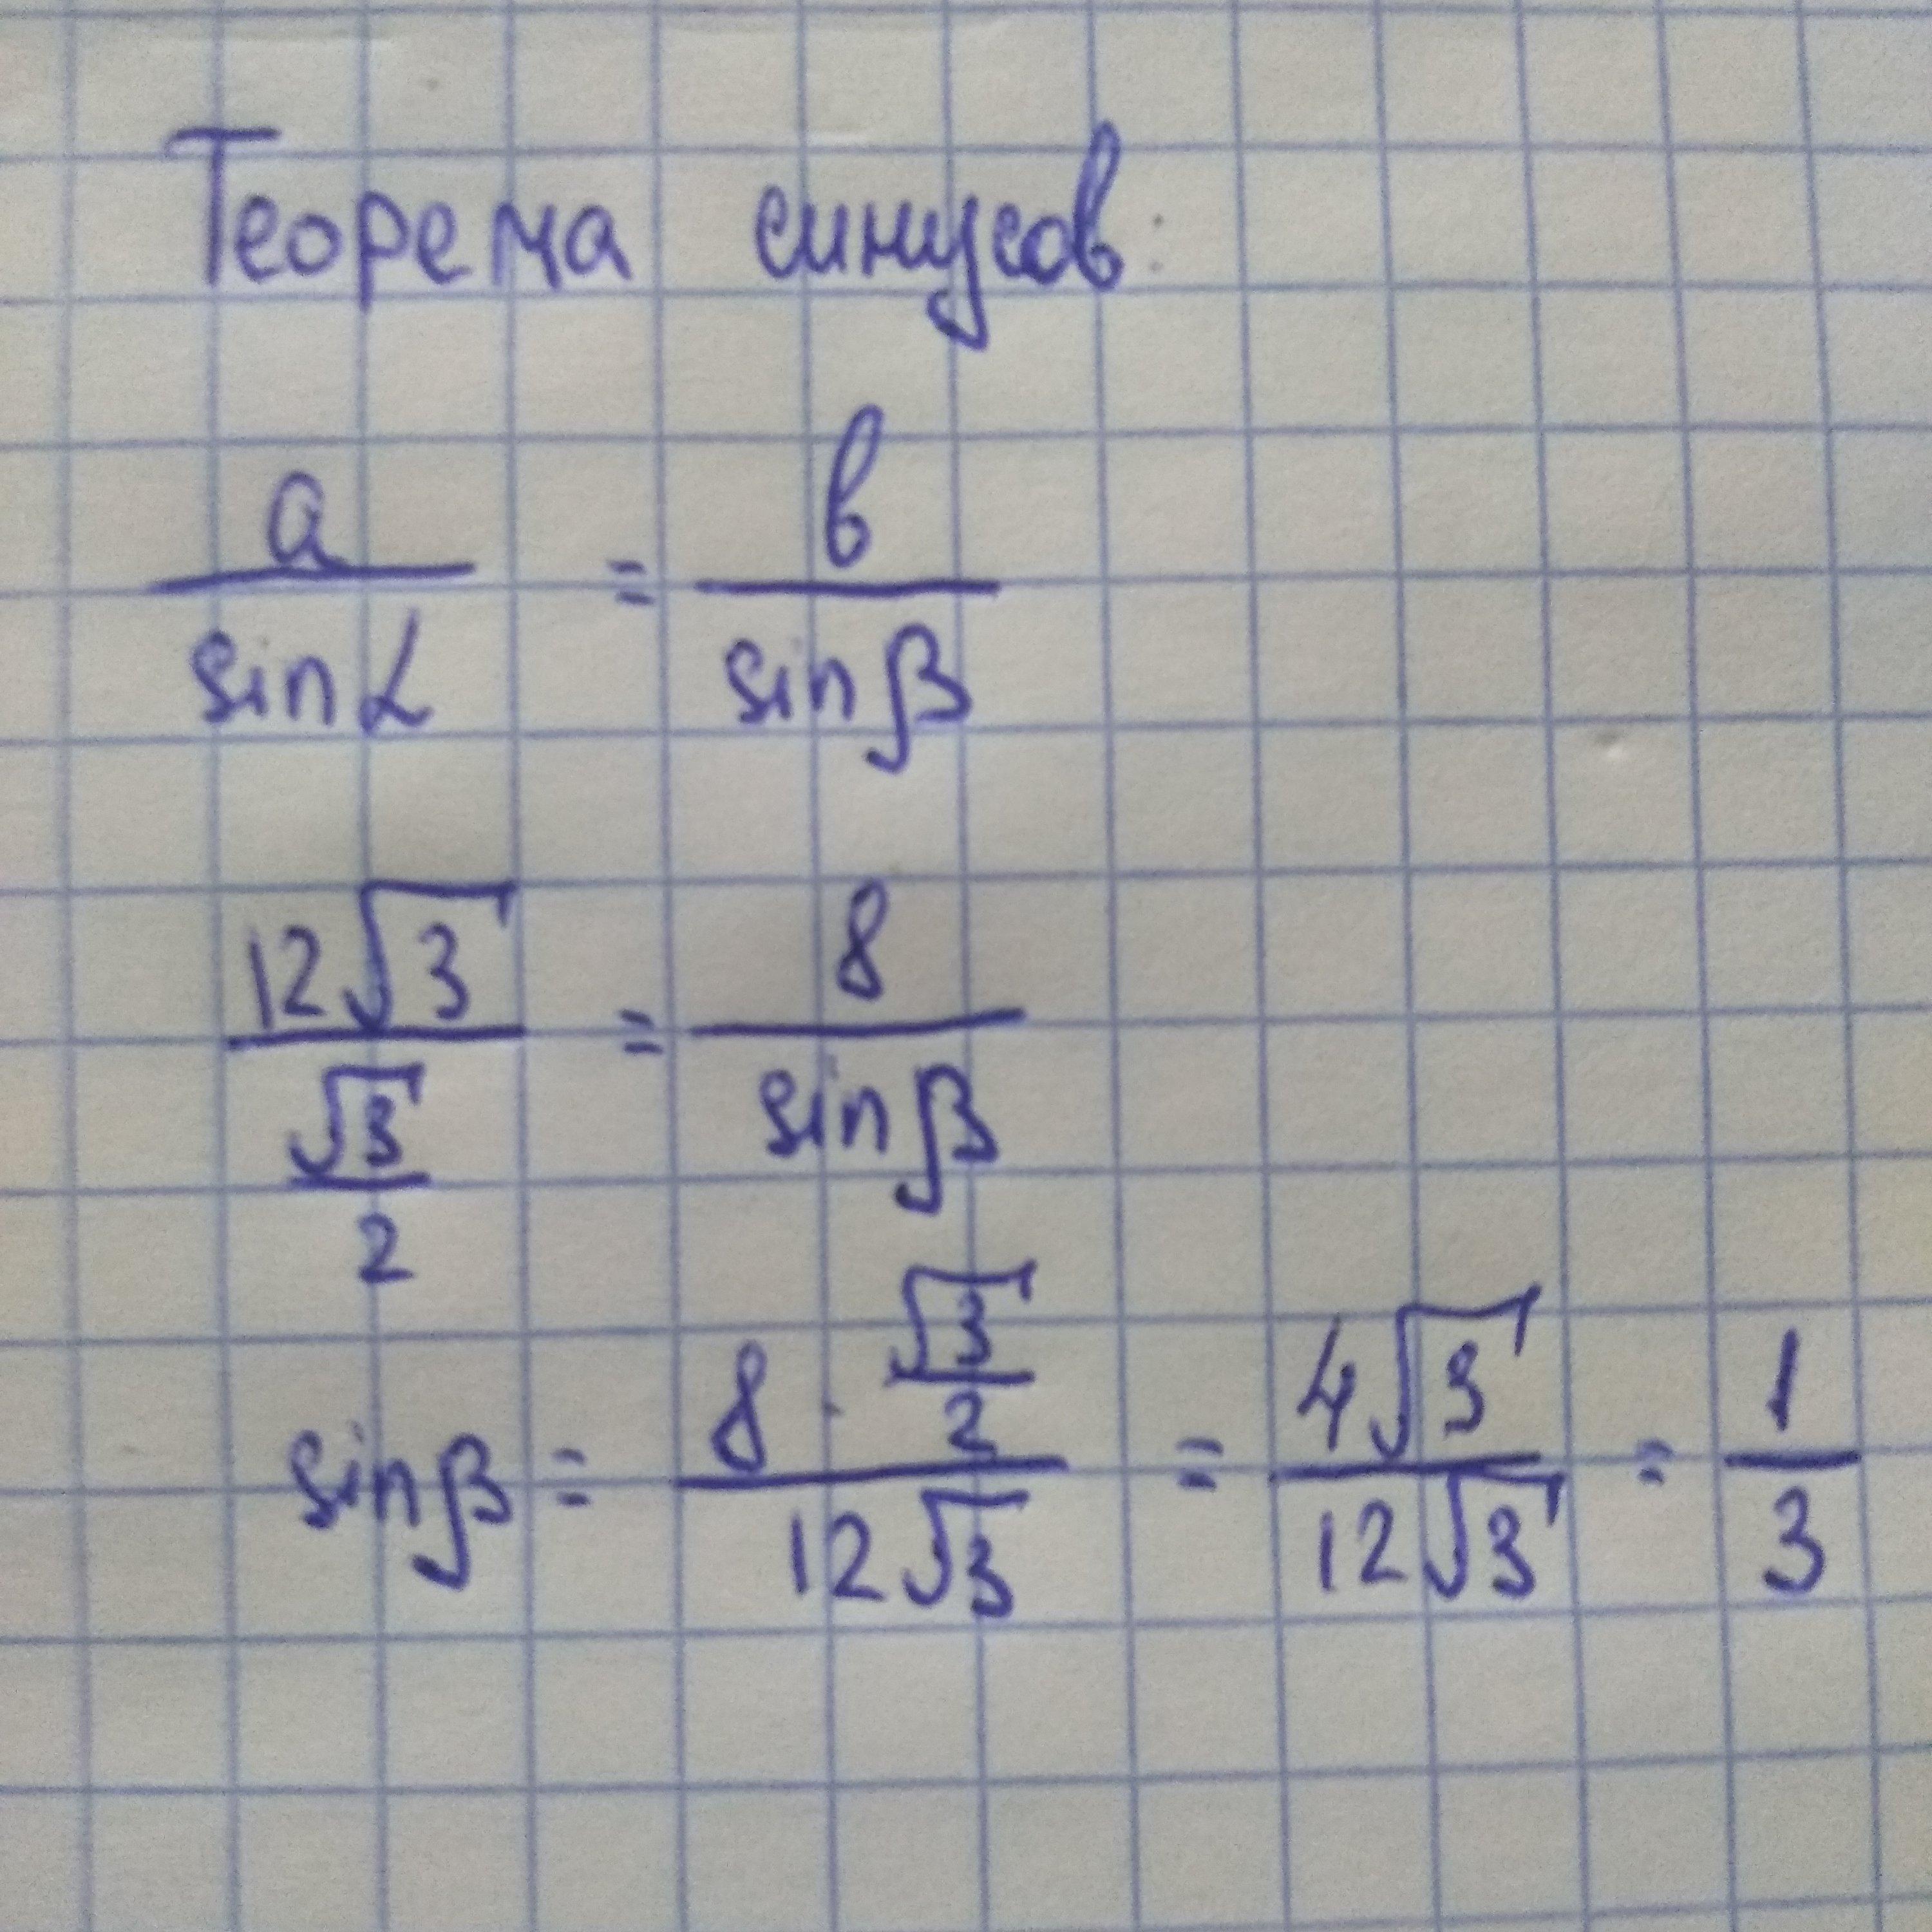 Теорема синусов:
a / sin α = в / sin β
12√3 / (√3 / 2) = 8 / sin β
sin β = (8 · √3 / 2) / 12√3 = 4√3 / 12√3 = 1 / 3